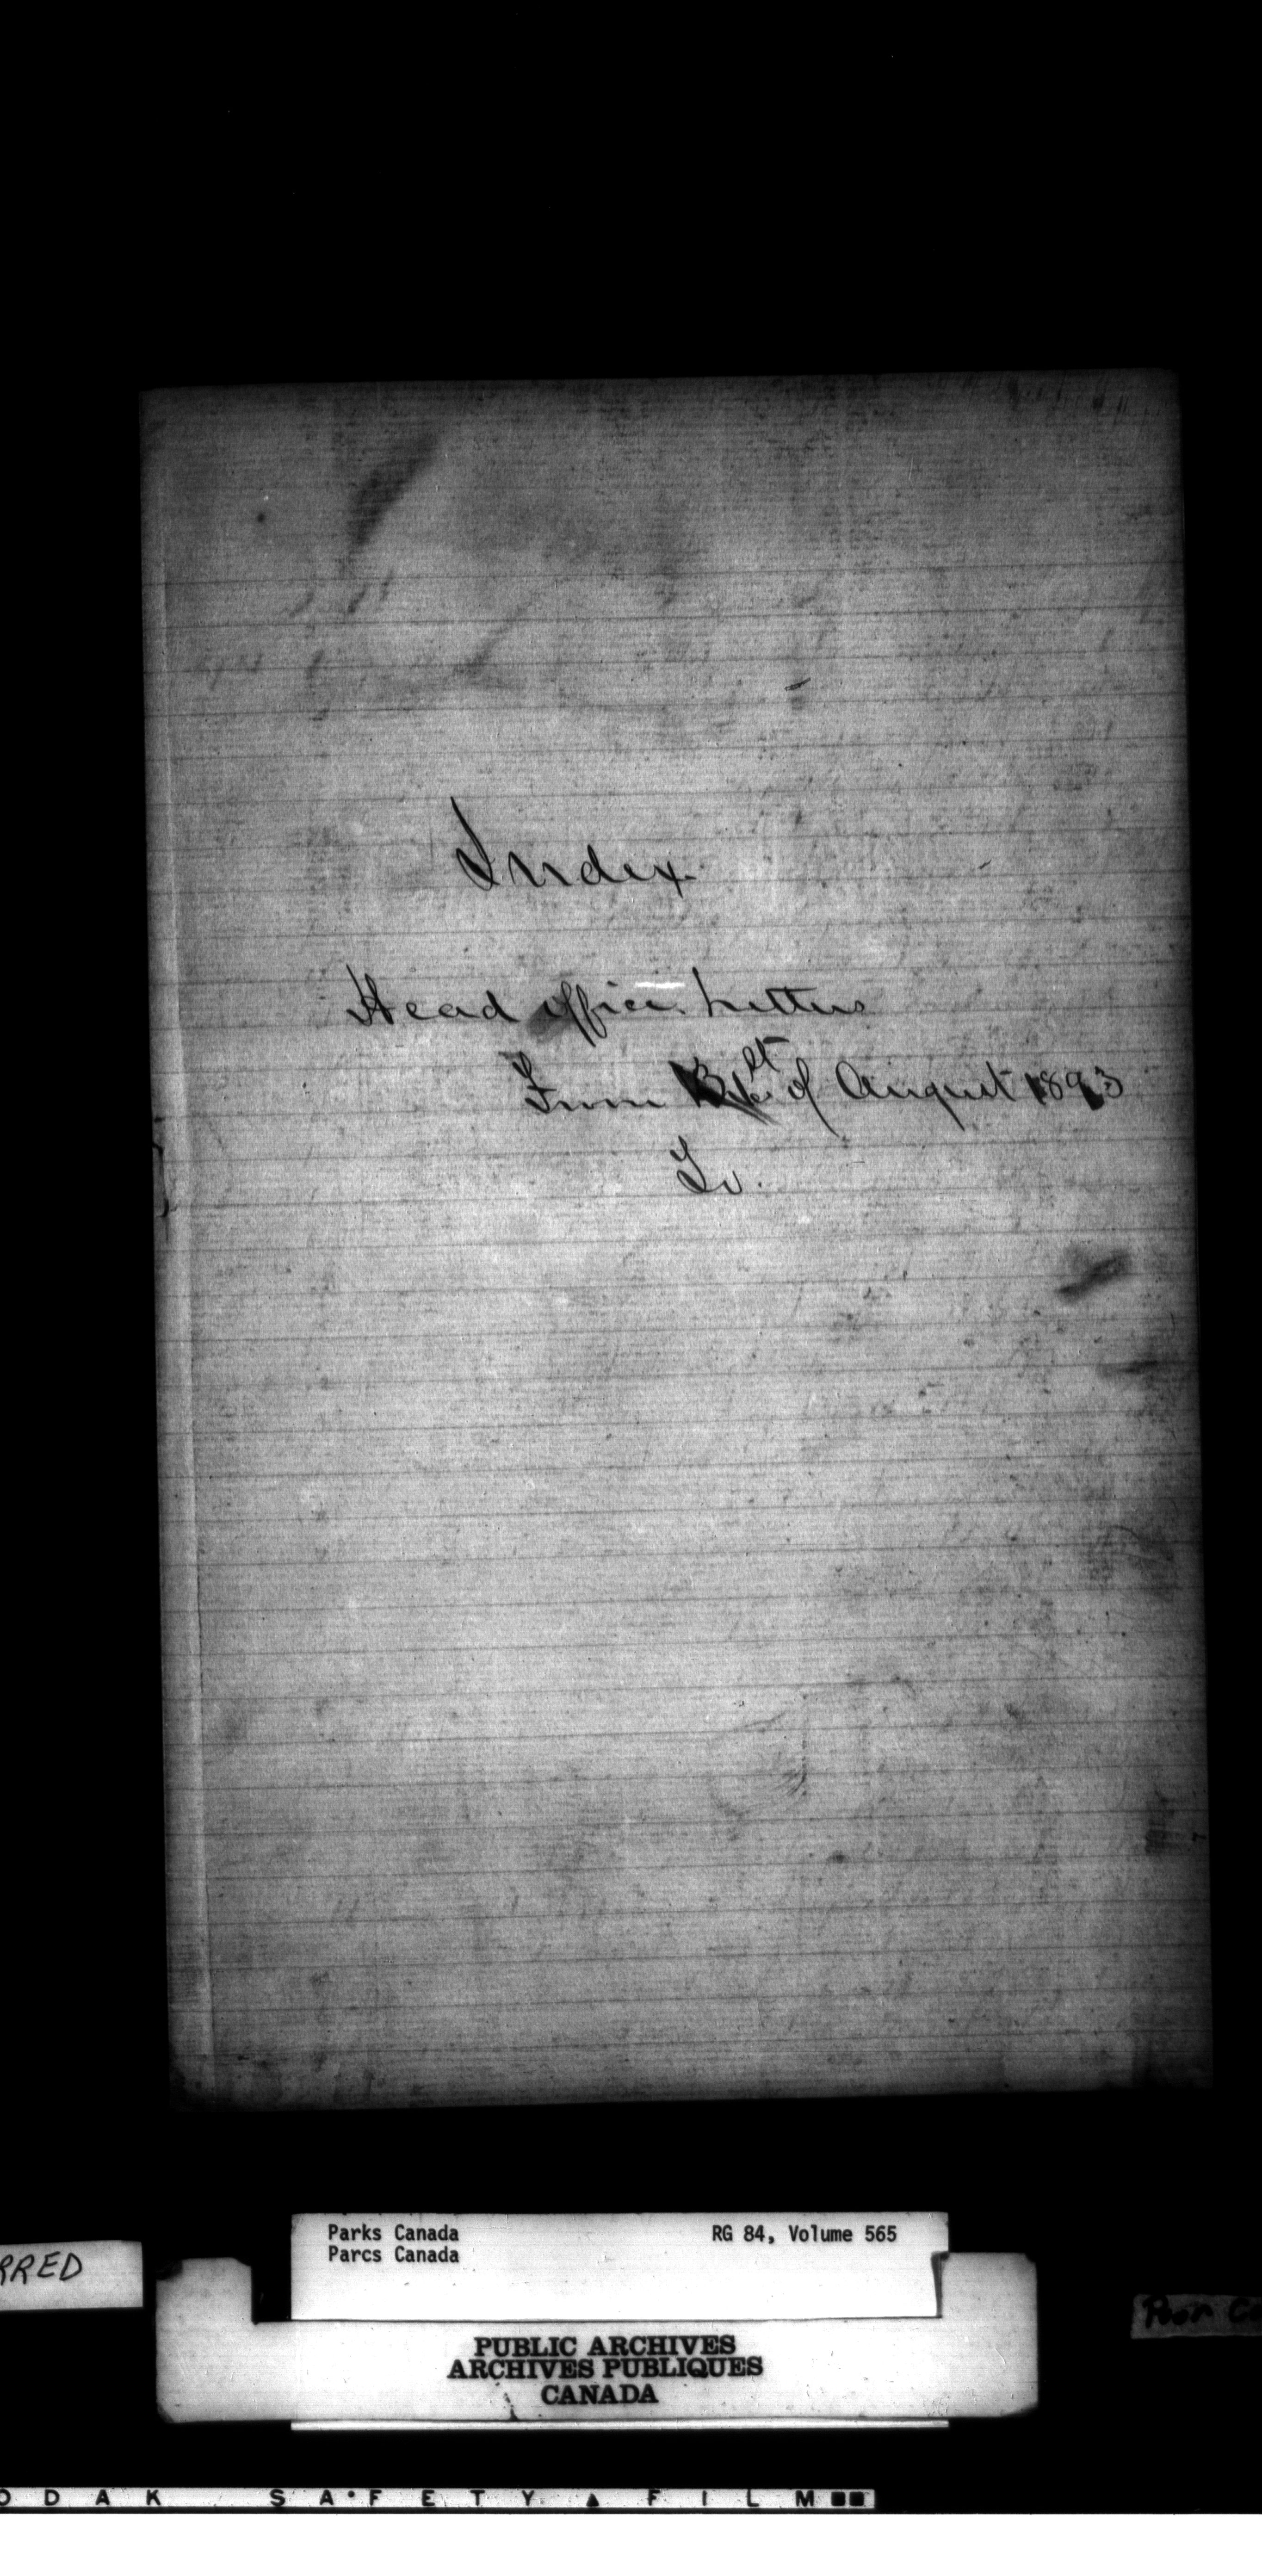 Index
Head office Letters
From 1st of August 1893
To.
Parks Canada RG 84, Volume 565
Parcs Canada
RRED
Poor Co
PUBLIC ARCHIVES
ARCHIVES PUBLIQUES
CANADA
ODAK SA•FETY ▲ FILM ■■